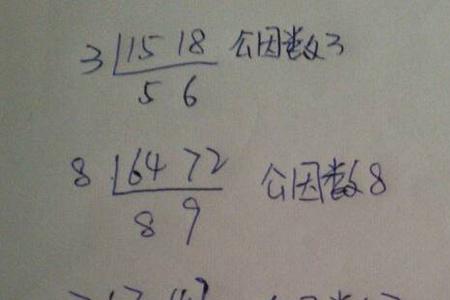 3 15 18 公因数3
5 6
8 64 72 公因数8
8 9